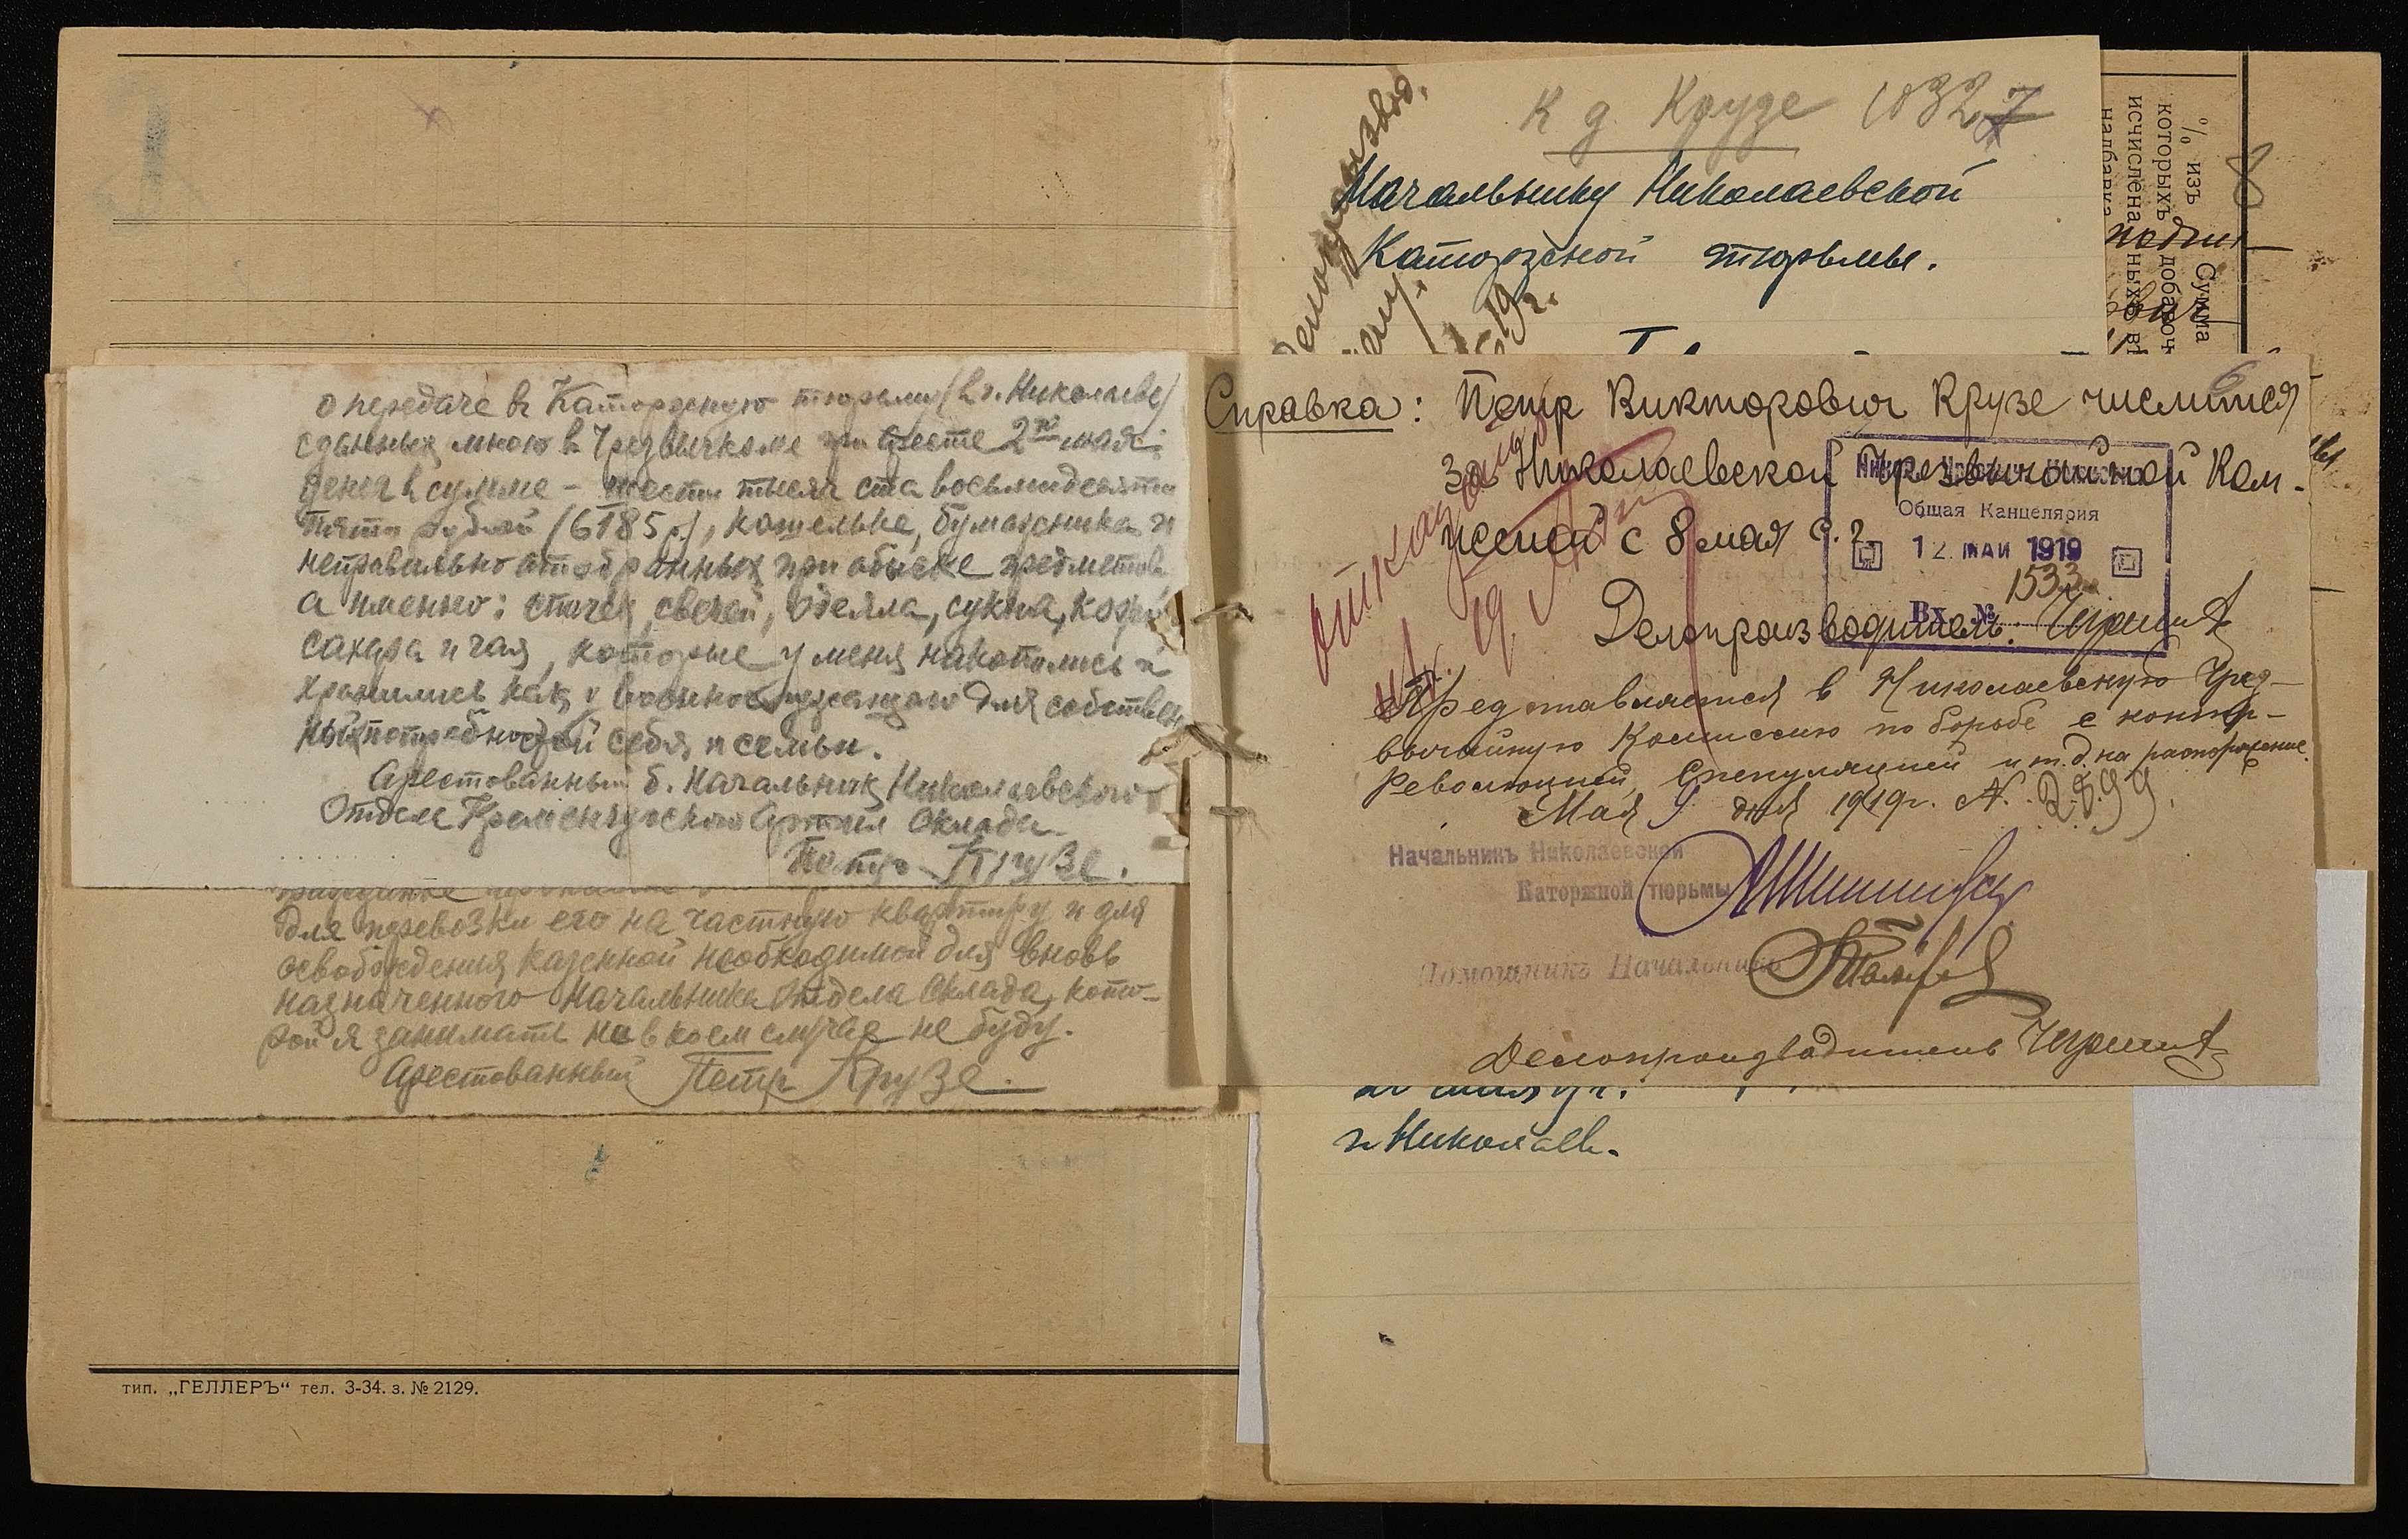 о передаче в Каторжную тюрьму (в г. Николаеве)
сданных мною в Чрезвычкоме при аресте 2го мая:
денег в сумме - шести тысяч ста восьмидесяти
пяти рублей (6185 р.), кошелька, бумажника и
неправильно отобранных при обыске предметов
а именно: спичек, свечей, одеяла, сукна, кофе
сахара и чая, которые у меня накопились и
хранились как у военнослужащаго для собствен
ных потребностей себя и семьи.
Арестованный б. Начальник Николаевского
Отдела Кременчугского Артил Склада
Петр Крузе.
для перевозки его на частную квартиру и для
освобождения казенной необходимой для вновь
назначенного Начальника Отдела Склада, кото-
рой я занимать ни в коем случае не буду.
Арестованный Петр Крузе.
тип. „ГЕЛЛЕРЪ“ тел. 3-34. з. № 2129.
К д. Крузе 10327
Начальнику Николаевской
Каторжной тюрьмы.
19 г.
% изъ
которыхъ
исчислена
надбавка
Сумма
8
6
Справка: Петр Викторович Крузе числится
за Николаевской Чрезвычайной Ком.
иссией с 8 мая с. г.
Общая Канцелярия
12 МАИ 1919
1533
Вх. №
Делопроизводитель:
отказать
Представляется в Николаевскую Чрез-
вычайную Комиссию по борьбе с контр-
Революцией, Спекуляцией и т.д. на распоряжение.
Мая 9 дня 1919 г. N. 2899.
Начальникъ Николаевской
Каторжной тюрьмы
Помощникъ Начальника
Делопроизводитель
г Николаев.